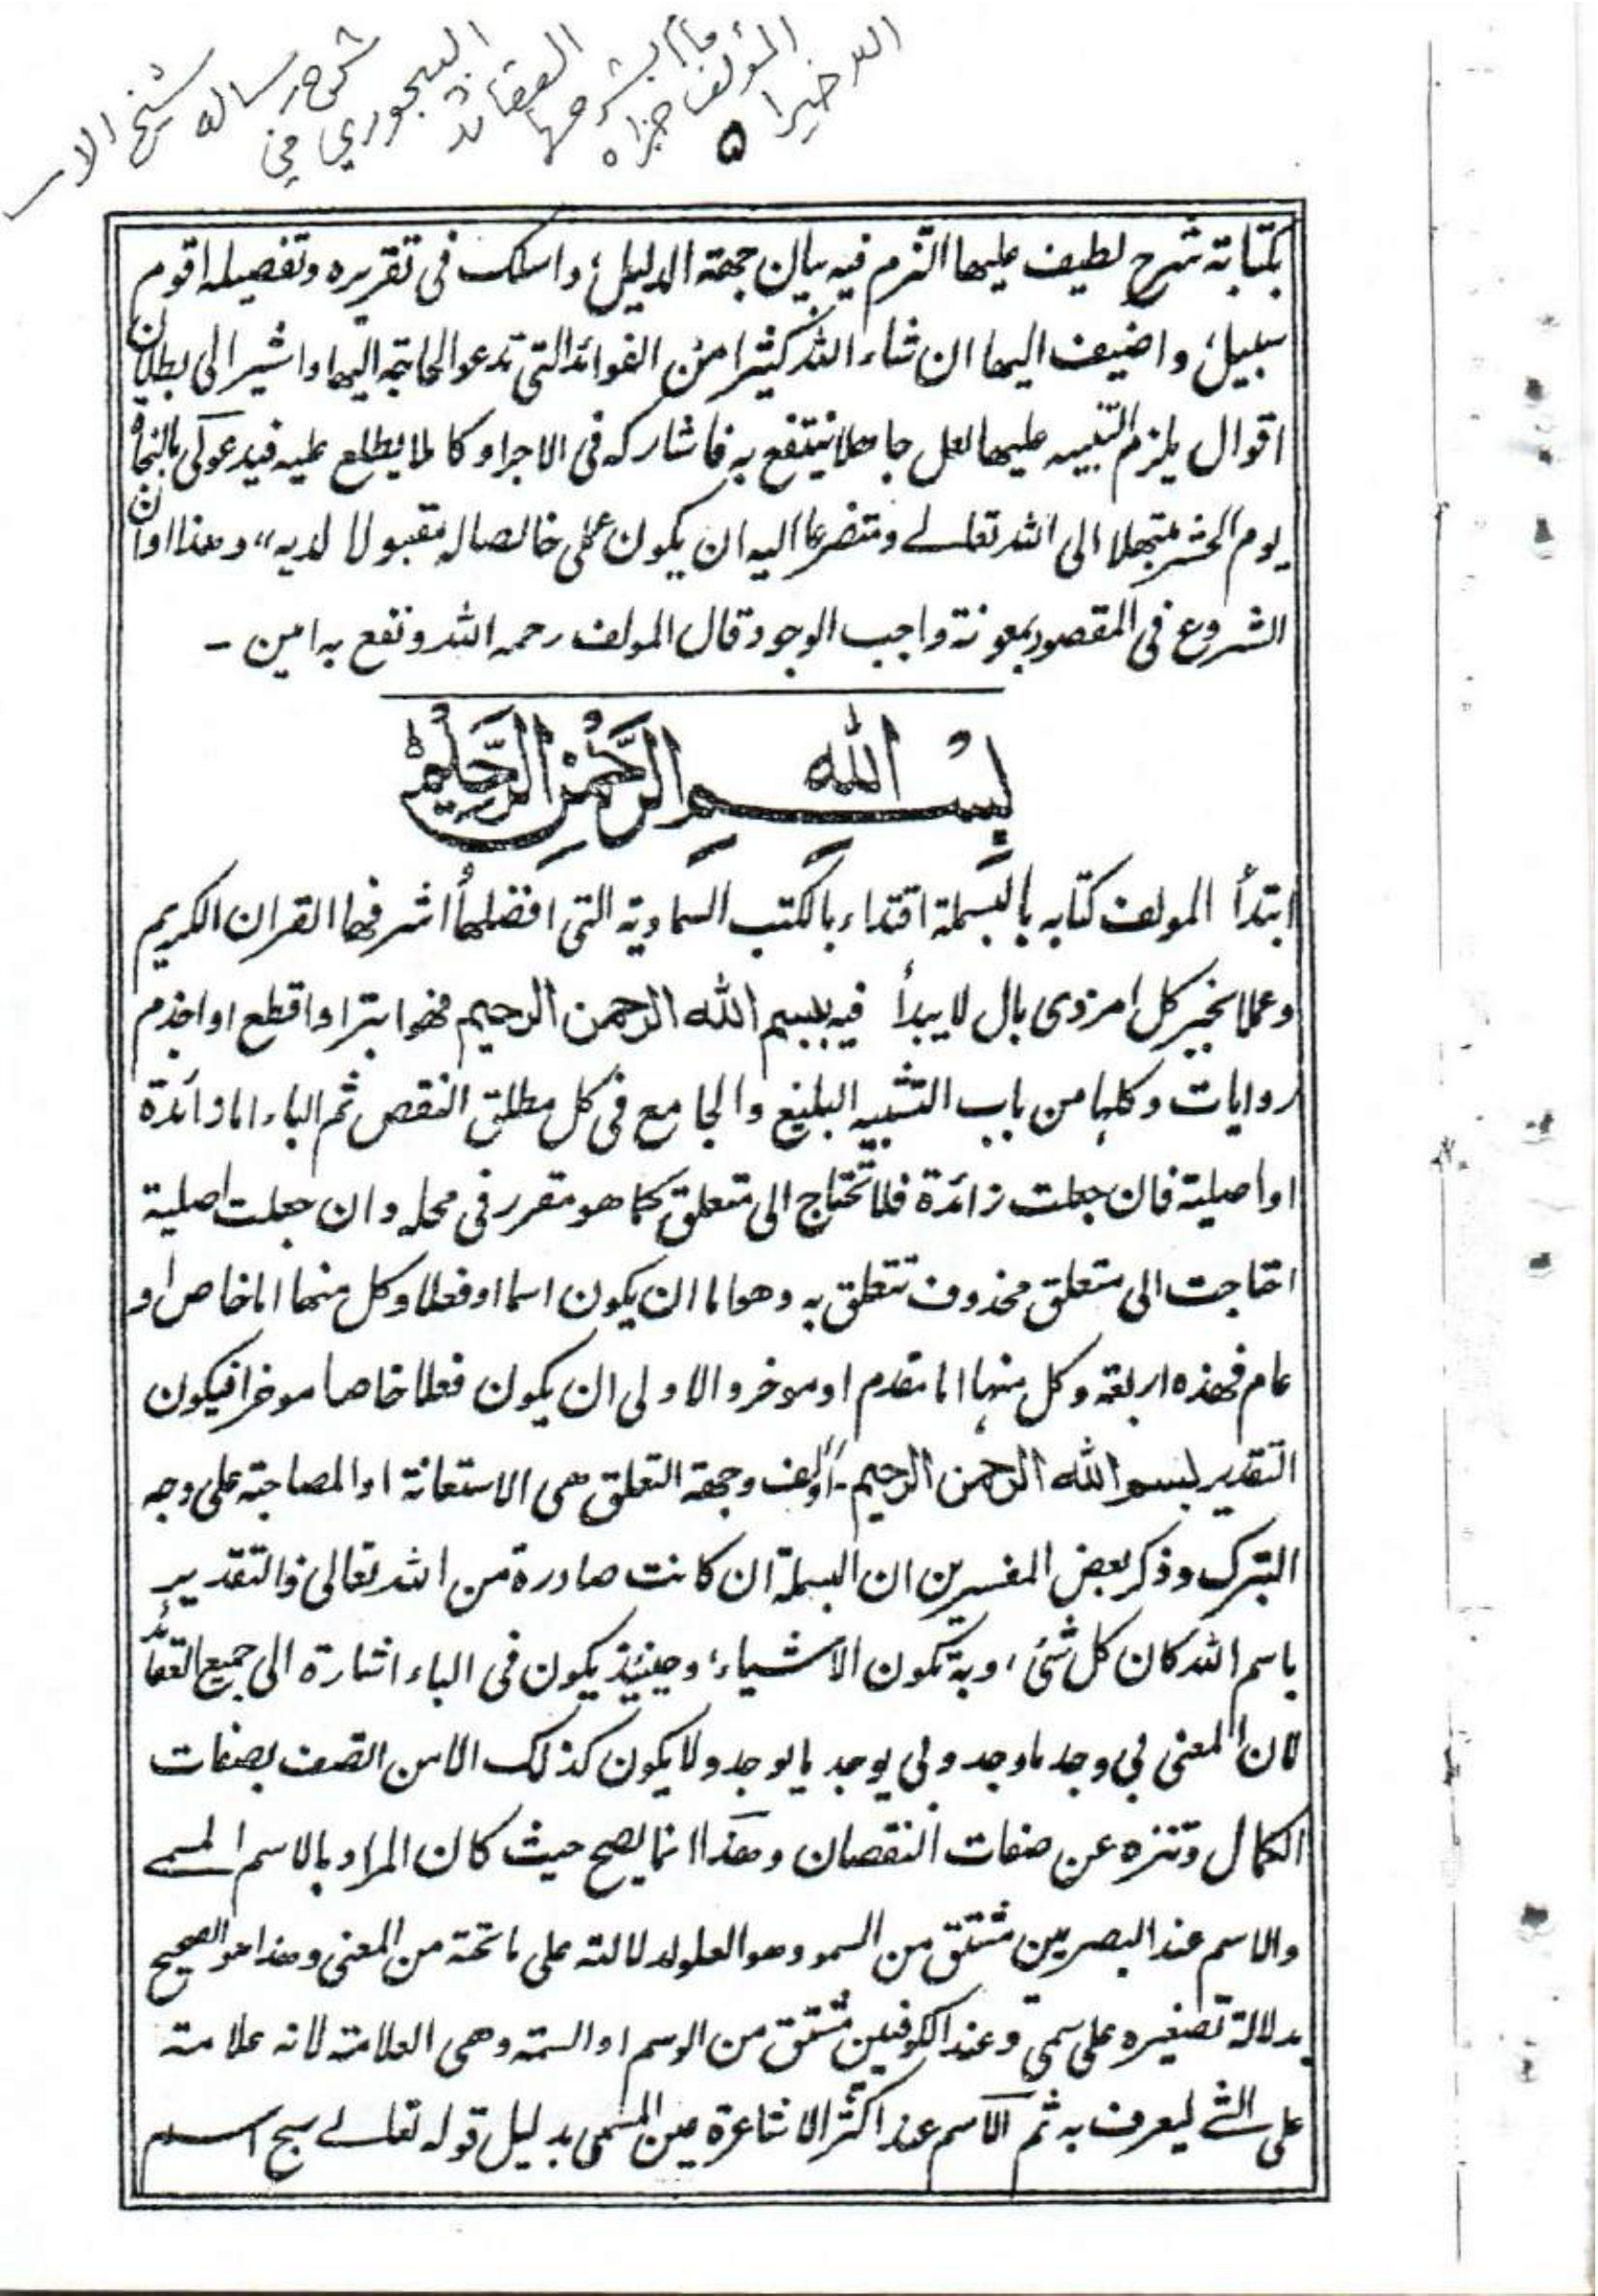 شرح رسالة شيخ الاس
البيجوري في
العقائد
قام بشرحها
المؤلف جزاه
الله خيرا
۵
بكتابة شرح لطيف عليها التزم فيه بيان جهة الدليل، واسلك فى تقريره وتفصيله اقوم
سبيل، واضيف اليها ان شاء الله كثيرا من الفوائد التى تدعو الحاجة اليها واشير الى بطلان
اقوال يلزم التنبيه عليها لعل جاهلا ينتفع به فاشاركه فى الاجر او كاملا يطلع عليه فيدعو لى بالنجاة
يوم الحشر مبتهلا الى الله تعالے ومتضرعا اليه ان يكون عملى خالصا له مقبولا لديه،، وهذا اوان
الشروع فى المقصود بمعونة واجب الوجود قال المولف رحمه الله ونفع به امين ـ
بِسْــمِ اللهِ الرَّحْمٰنِ الرَّحِيْمِ
ابتدأ المولف كتابه بالبسملة اقتداء بالكتب السماوية التى افضلها اشرفها القران الكريم
وعملا بخبر كل امر ذى بال لا يبدأ فيه ببسم الله الرحمن الرحيم فهو ابتر او اقطع او اجذم
روايات وكلها من باب التشبيه البليغ والجامع فى كل مطلق النقص ثم الباء اما زائدة
او اصلية فان جعلت زائدة فلا تحتاج الى متعلق كما هو مقرر فى محله وان جعلت اصلية
احتاجت الى متعلق محذوف تتعلق به وهو اما ان يكون اسما او فعلا وكل منهما اما خاص او
عام فهذه اربعة وكل منها اما مقدم او موخر والاولى ان يكون فعلا خاصا موخرا فيكون
التقدير بسم الله الرحمن الرحيم ـ اؤلف وجهة التعلق هى الاستعانة او المصاحبة على وجه
التبرك وذكر بعض المفسرين ان البسملة ان كانت صادرة من الله تعالى فالتقدير
باسم الله كان كل شئ، وبه تكون الاشياء، وحينئذ يكون فى الباء اشارة الى جميع العقائد
لان المعنى بى وجد ما وجد وبى يوجد ما يوجد ولا يكون كذلك الا من اتصف بصفات
الكمال وتنزه عن صفات النقصان وهذا انما يصح حيث كان المراد بالاسم المسمے
والاسم عند البصريين مشتق من السمو وهو العلو لدلالته على ما تحته من المعنى وهذا هو الصحيح
بدلالة تصغيره على سمى وعند الكوفيين مشتق من الوسم او السمة وهى العلامة لانه علامة
على الشے ليعرف به ثم الاسم عند اكثر الاشاعرة عين المسمى بدليل قوله تعالے سبح اســم